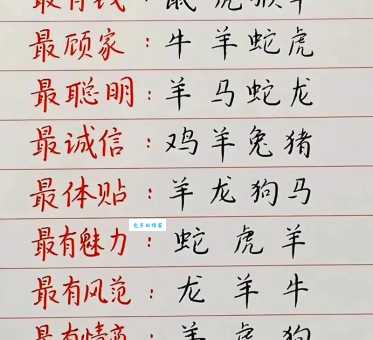 最有钱：鼠 虎 猴 羊
最顾家：牛 羊 蛇 虎
最聪明：羊 马 蛇 龙
最诚信：鸡 羊 兔 猪
最体贴：羊 龙 狗 马
最有魅力：蛇 虎 羊
最有风范：龙 羊 牛
最有情商：羊 虎 狗